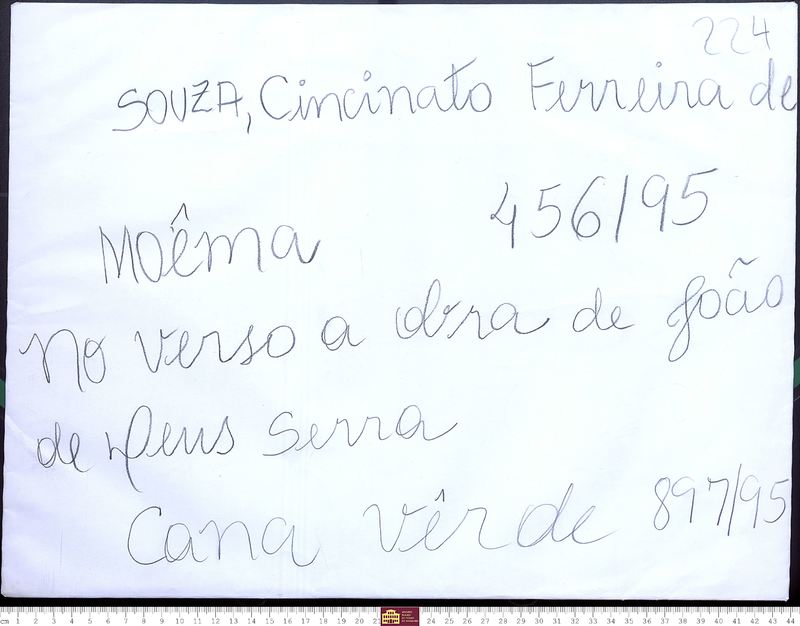 224
SOUZA, Cincinato Ferreira de
Moêma 456/95
No verso a obra de João
de Deus Serra
Cana Vêrde 897/95
cm 1 2 3 4 5 6 7 8 9 10 11 12 13 14 15 16 17 18 19 20 21 24 25 26 27 28 29 30 31 32 33 34 35 36 37 38 39 40 41 42 43 44